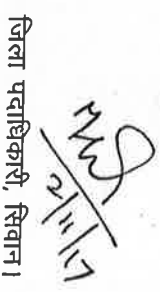 2/11/17
जिला पदाधिकारी, सिवान।